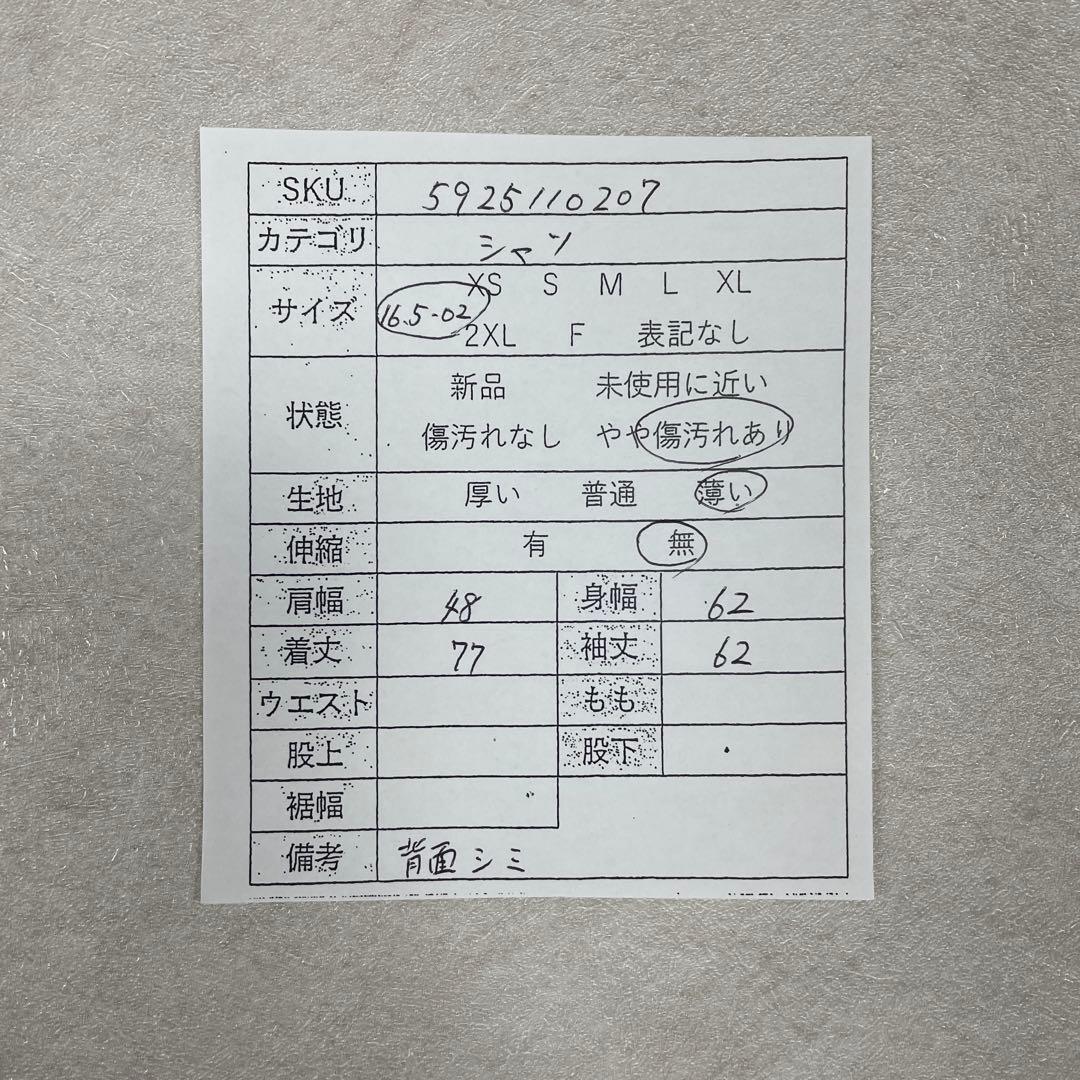 SKU 5925110207
カテゴリ シャツ
サイズ XS S M L XL
16.5-02
2XL F 表記なし
状態 新品 未使用に近い
傷汚れなし やや傷汚れあり
生地 厚い 普通 薄い
伸縮 有 無
肩幅 48 身幅 62
着丈 77 袖丈 62
ウエスト もも
股上 股下
裾幅
備考 背面シミ